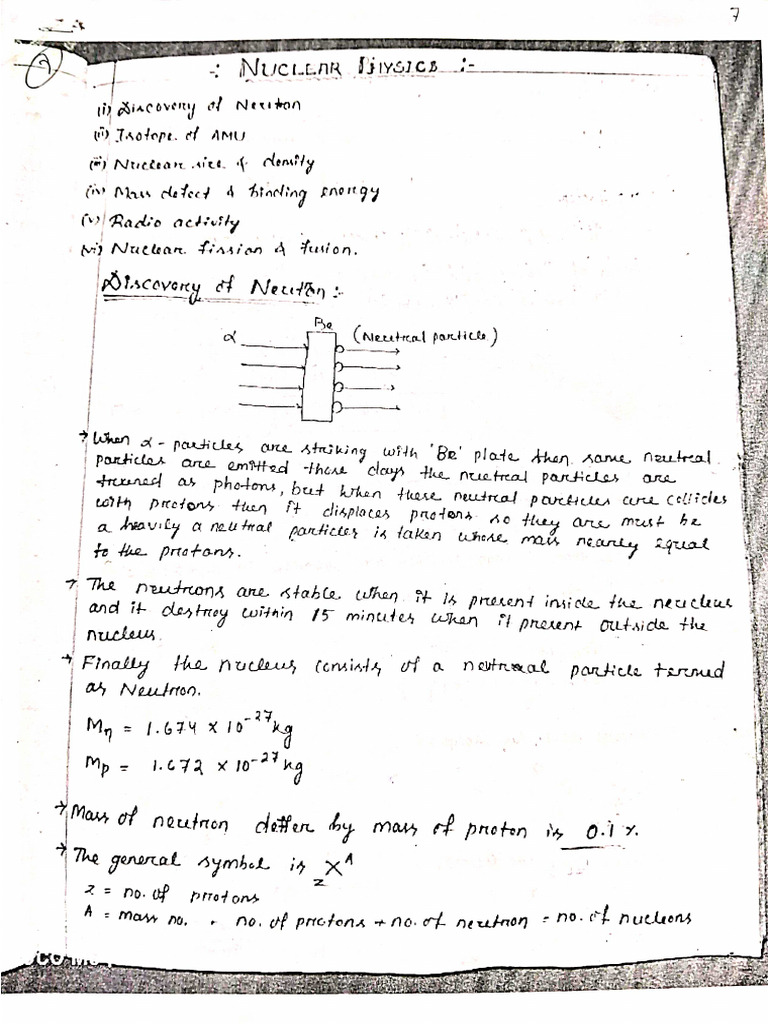 7
2
-: NUCLEAR PHYSICS :-
(i) Discovery of Neutron
(ii) Isotope of AMU
(iii) Nuclear size & density
(iv) Mass defect & binding energy
(v) Radio activity
(vi) Nuclear fission & fusion.
Discovery of Neutron :-
Be
α (Neutral particle)
→ When α - particles are striking with 'Be' plate then some neutral
particles are emitted those days the neutral particles are
termed as photons, but when these neutral particles are collides
with protons then it displaces protons so they are must be
a heavily a neutral particles is taken whose mass nearly equal
to the protons.
→ The neutrons are stable when it is present inside the neucleus
and it destroy within 15 minutes when it present outside the
nucleus.
→ Finally the nucleus consists of a neutral particle termed
as Neutron.
Mη = 1.674 × 10⁻²⁷ kg
Mp = 1.672 × 10⁻²⁷ kg
→ Mass of neutron deffer by mass of proton is 0.1 %.
→ The general symbol is zXᴬ
z = no. of protons
A = mass no. = no. of protons + no. of neutron = no. of nucleons